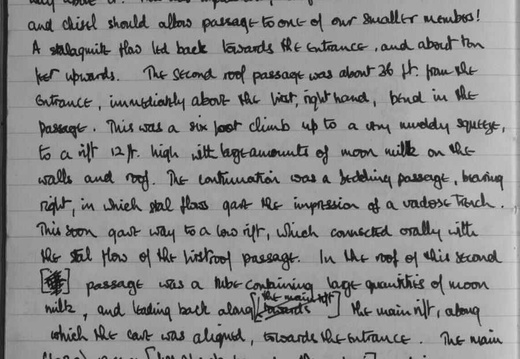 and chisel should allow passage to one of our smaller members!
A stalagmite flow led back towards the entrance, and about ten
feet upwards. The second roof passage was about 26 ft. from the
entrance, immediately above the first, right hand, bend in the
passage. This was a six foot climb up to a very muddy squeeze,
to a rift 12 ft. high with large amounts of moon milk on the
walls and roof. The continuation was a bedding passage, bearing
right, in which stal flows gave the impression of a vadose trench.
This soon gave way to a low rift, which connected orally with
the stal flow of the first roof passage. In the roof of this second
passage was a tube containing large quantities of moon
milk, and leading back along [towards the main rift] the main rift, along
which the cave was aligned, towards the entrance. The main